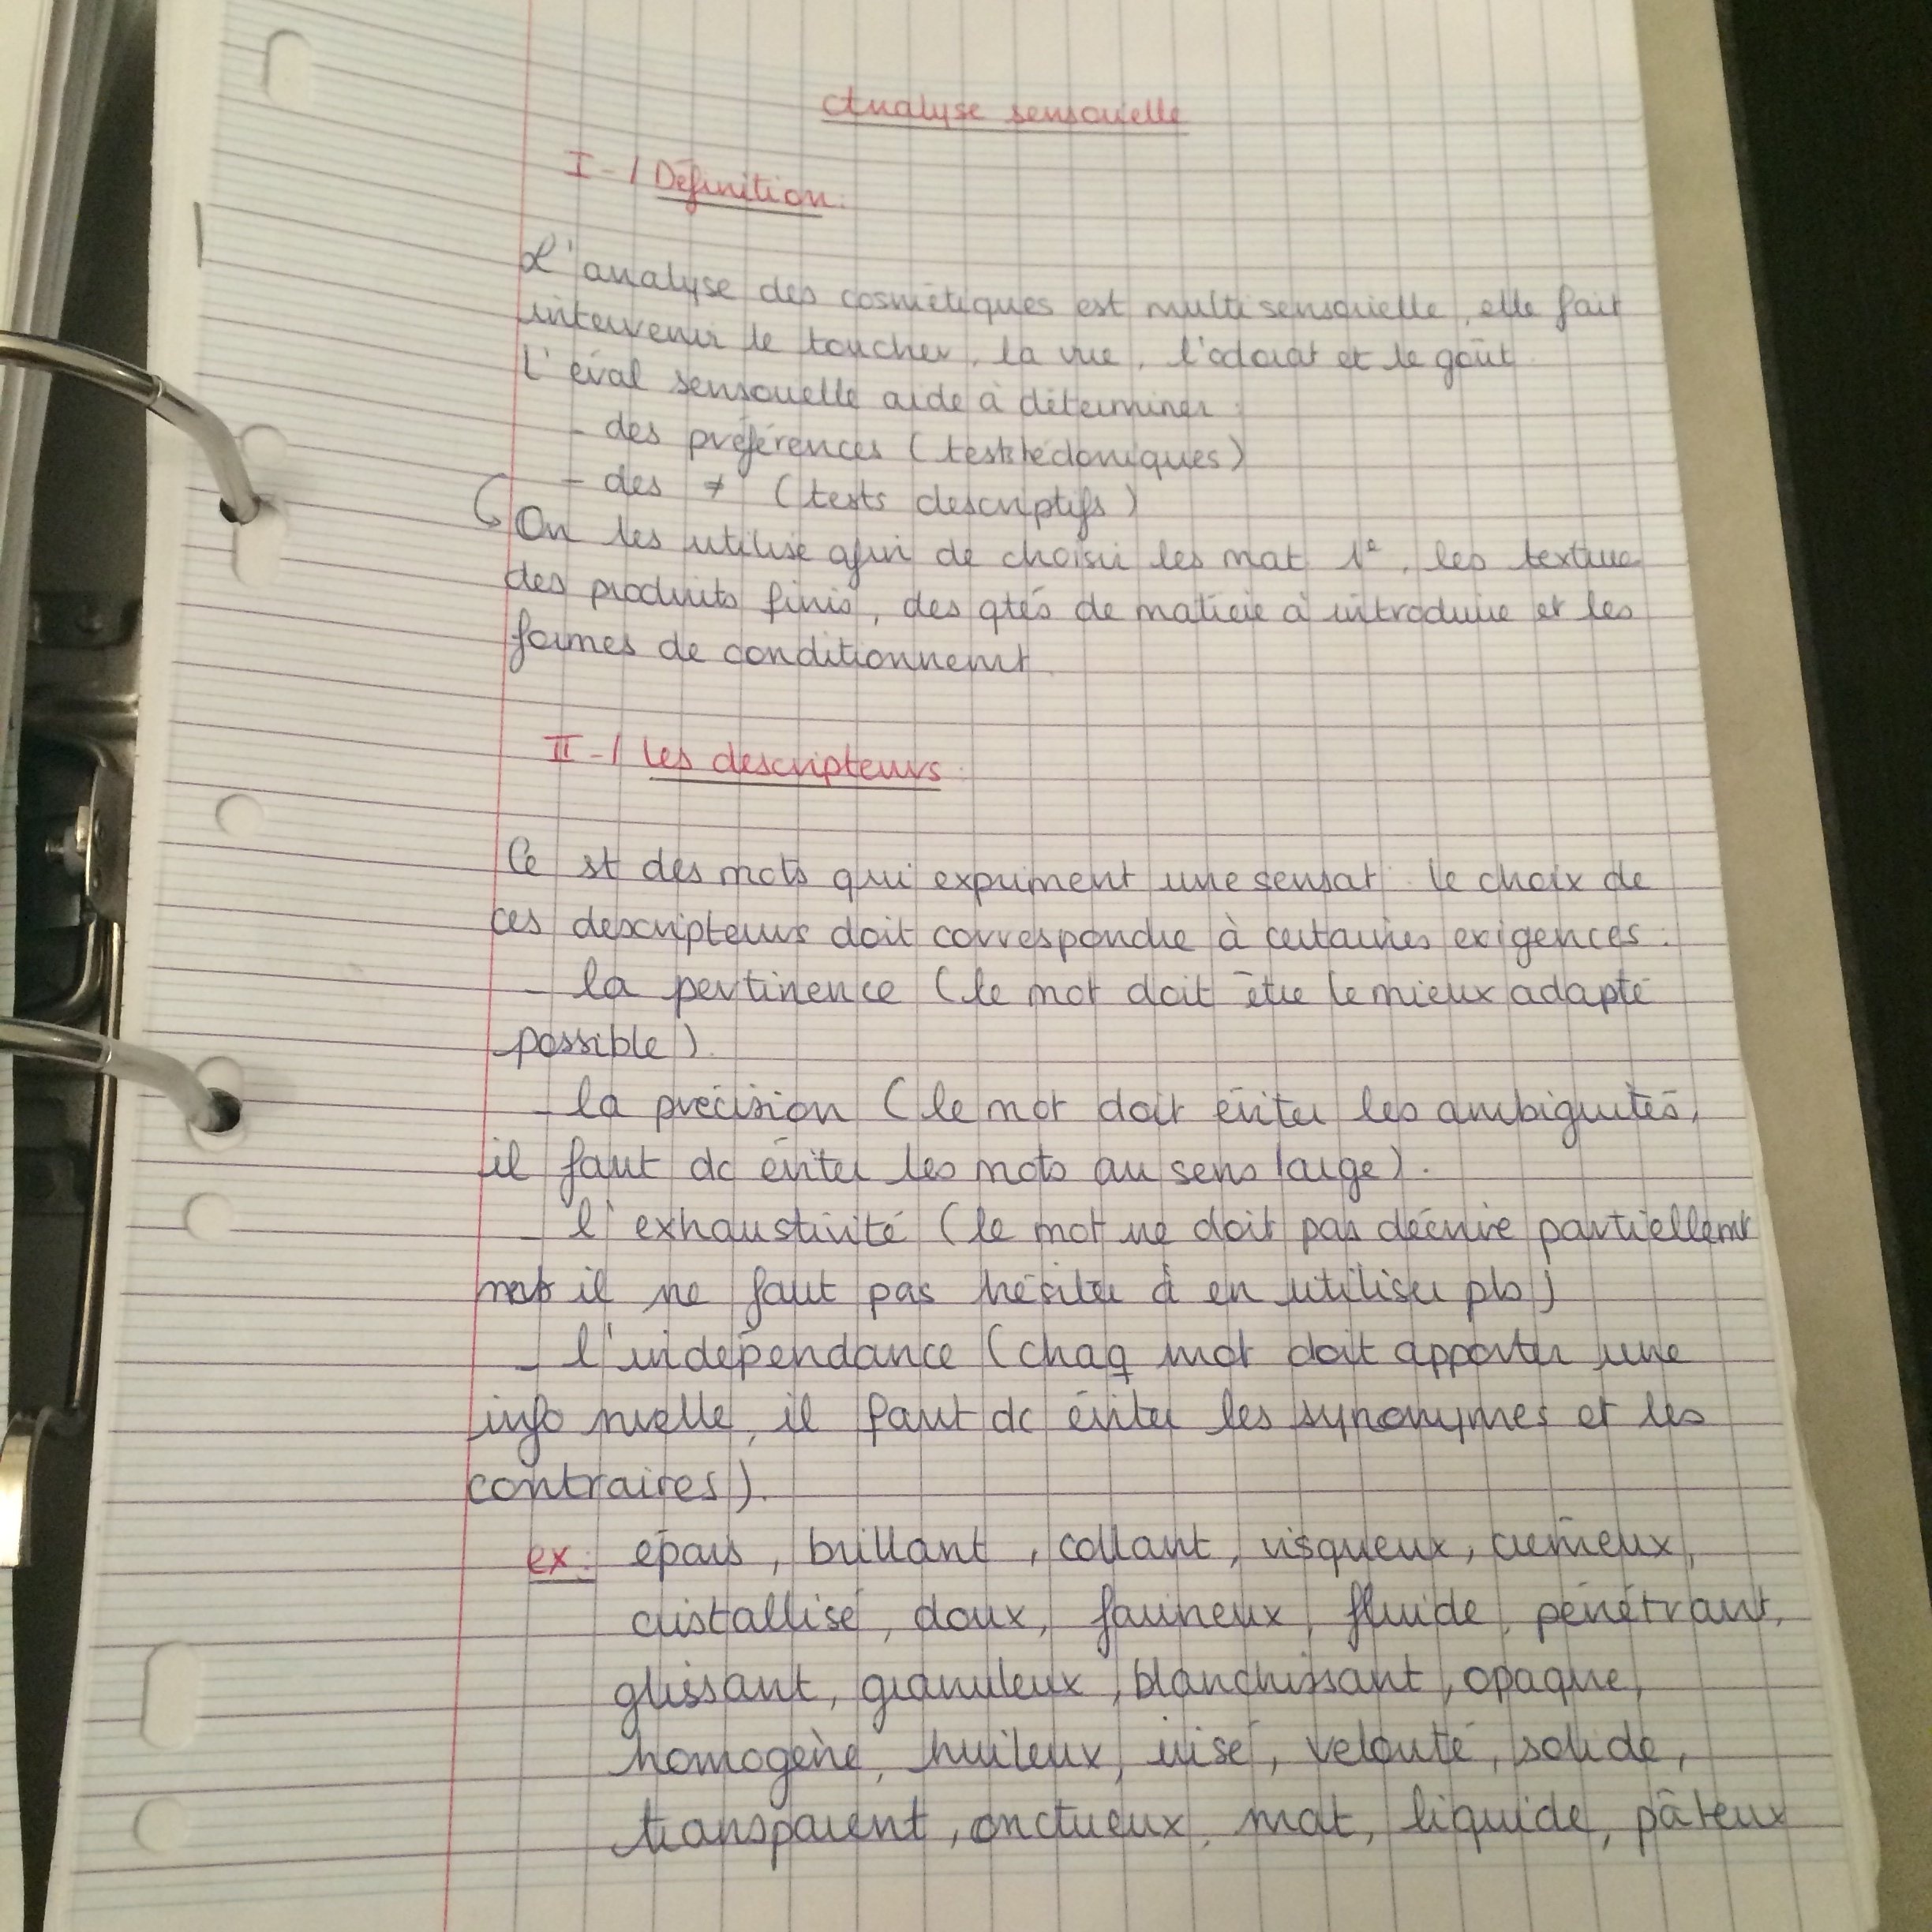 Analyse sensorielle
I-/ Définition:
L'analyse des cosmétiques est multisensorielle, elle fait
intervenir le toucher, la vue, l'odorat et le goût.
L'éval sensorielle aide à déterminer:
- des préférences (tests hédoniques)
- des ≠ (tests descriptifs)
On les utilise afin de choisir les mat 1°, les texture
des produits finis, des qtés de matière à introduire et les
formes de conditionnemt.
II-/ Les descripteurs:
Ce st des mots qui expriment une sensat. Le choix de
ces descripteurs doit correspondre à certaines exigences:
- la pertinence (le mot doit être le mieux adapté
possible).
- la précision (le mot doit éviter les ambiguités,
il faut dc éviter les mots au sens large).
- l'exhaustivité (le mot ne doit pas décrire partiellemt
il ne faut pas hésiter à en utiliser pls)
- l'indépendance (chaq mot doit apporter une
info nvelle, il faut dc éviter les synonymes et les
contraires).
ex: épais, brillant, collant, visqueux, crémeux,
cristallisé, doux, farineux, fluide, pénétrant,
glissant, granuleux, blanchissant, opaque,
homogène, huileux, irisé, velouté, solide,
transparent, onctueux, mat, liquide, pâteux